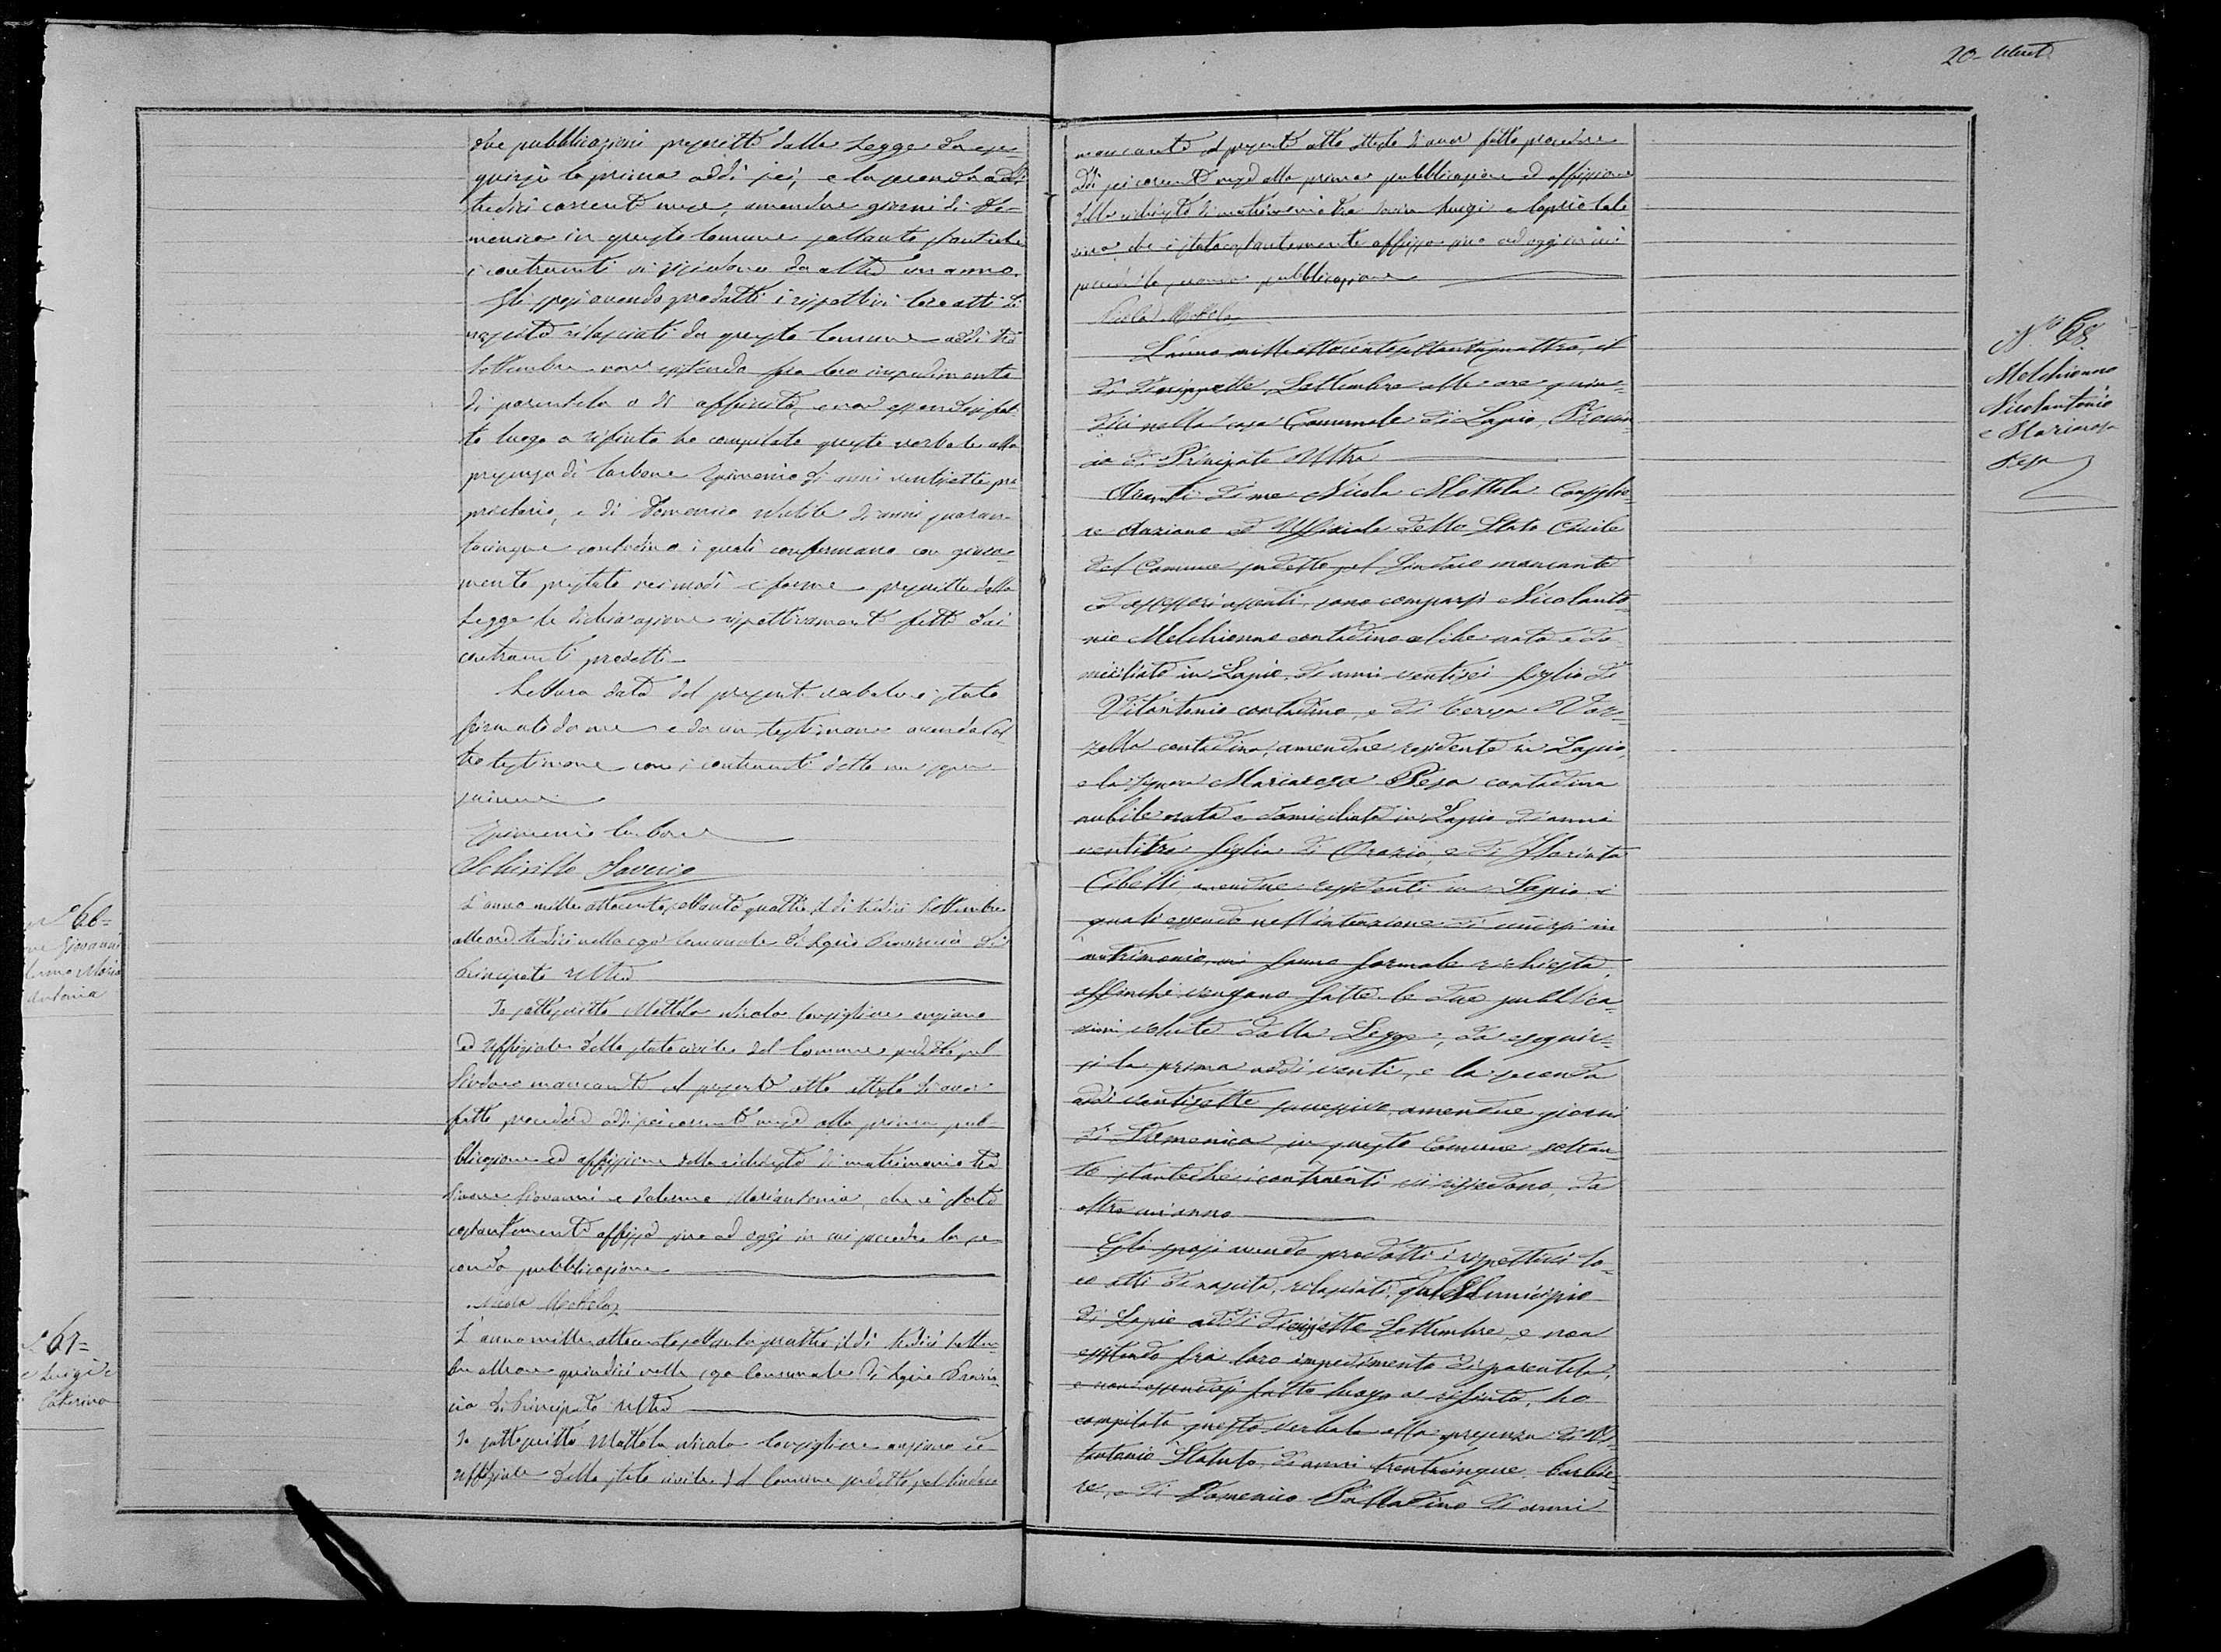 due pubblicazioni prescritte dalla Legge da ese-
guirsi la prima addì sei, e la seconda addì
tredici corrente mese, amendue giorni di Do-
menica in questo Comune soltanto stanteche
i contraenti vi risiedono da oltre un anno.
Gli sposi avendo prodotti i rispettivi loro atti di
nascita rilasciati da questo Comune addì tre
Settembre non esistendo fra loro impedimento
di parentela o di affinità, e non essendosi fat-
to luogo a rifiuto ho compilato questo verbale alla
presenza di Carbone Epimenio di anni ventisette pro
prietario, e di Domenico di anni quaran-
tacinque contadino i quali confermano con giura-
mento prestato nei modi e forme prescritte dalla
Legge le dichiarazione rispettivamente fatte dai
contraenti predetti
Lettura data del presente verbale è stato
firmato da me e da un testimone avendo l'al-
tro testimone con i contraenti detto non saper
scrivere
Epimenio Carbone
Schirillo Saverio
N.° 66=
Giovanni
Maria
Antonia
L'anno mille ottocento settanta quattro, il dì tredici Settembre
alle ore tredici nella casa Comunale di Lapio Provincia di
Principato Ultra
Io sottoscritto Mottola Nicola Consigliere anziano
ed uffiziale dello stato civile del Comune suddetto pel
Sindaco mancante del presente atto attesto di aver
fatto procedere addì sei corrente mese alla prima pub-
blicazione ed affissione della richiesta di matrimonio tra
Giovanni e Mariantonia, che è stata
costantemente affissa sino ad oggi in cui succede la se
conda pubblicazione
Nicola Mottola
67=
Luigi e
Caterina
L'anno mille ottocento settanta quattro, il dì tredici Settem-
bre alle ore quindici nella casa Comunale di Lapio Provin-
cia di Principato Ultra
Io sottoscritto Mottola Nicola Consigliere anziano ed
uffiziale dello stato civile del Comune suddetto pel Sindaco
20-
mancante del presente atto attesto di aver fatto procedere
addì sei corrente mese alla prima pubblicazione ed affissione
della richiesta di matrimonio tra Luigi e Cate
rina che è stata costantemente affissa sino ad oggi in cui
succede la seconda pubblicazione
Nicola Mottola
N.° 68
Melchionna
Nicolantonio
e Mariarosa
Pesa
L'anno mille ottocentosettantaquattro, il
dì diciassette Settembre alle ore quin-
dici nella casa Comunale di Lapio, Provin-
cia di Principato Ultra
Avanti di me Nicola Mottola Consiglie-
re Anziano ed Uffiziale dello Stato Civile
del Comune suddetto pel Sindaco mancante
ed assessori assenti, sono comparsi Nicolanto-
nio Melchionna contadino celibe nato e do-
miciliato in Lapio, di anni ventisei figlio di
Vitantonio contadino, e di Teresa
contadina, amendue residente in Lapio,
e la Signora Mariarosa Pesa contadina
nubile nata e domiciliata in Lapio di anni
ventitre figlia di Orazio, e di
Cibelli amendue residenti in Lapio, i
quali essendo nell'intenzione di unirsi in
matrimonio, mi fanno formale richiesta,
affinchè vengano fatte le due pubblica-
zioni volute dalla Legge, da eseguir-
si la prima addì venti, e la seconda
addì ventisette successivo, amendue giorni
di Domenica, in questo Comune soltan-
to stantechè i contraenti vi risiedono, da
oltre un anno
Gli sposi avendo prodotti i rispettivi lo-
ro atti di nascita, rilasciati dal Municipio
di Lapio addì diciassette Settembre, e non
esistendo fra loro impedimento di parentela,
e non essendosi fatto luogo a rifiuto, ho
compilato questo verbale alla presenza di Vi-
tantonio Statuto, di anni trentacinque barbie-
re, e di Domenico Palladino di anni